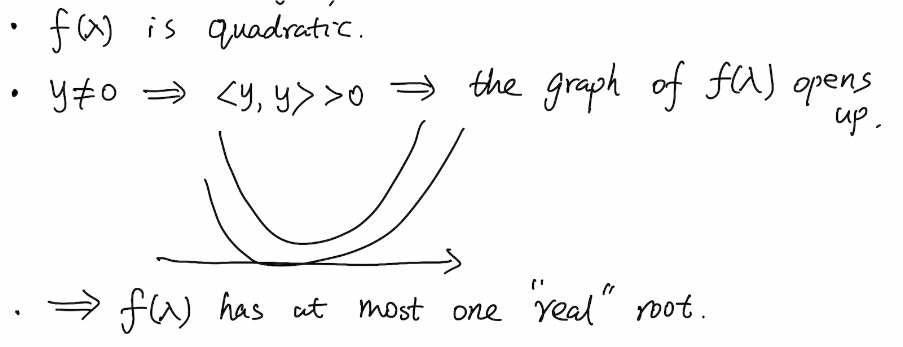 · f(λ) is quadratic.
· y≠0 ⟹ <y, y> >0 ⟹ the graph of f(λ) opens
up.
· ⟹ f(λ) has at most one "real" root.